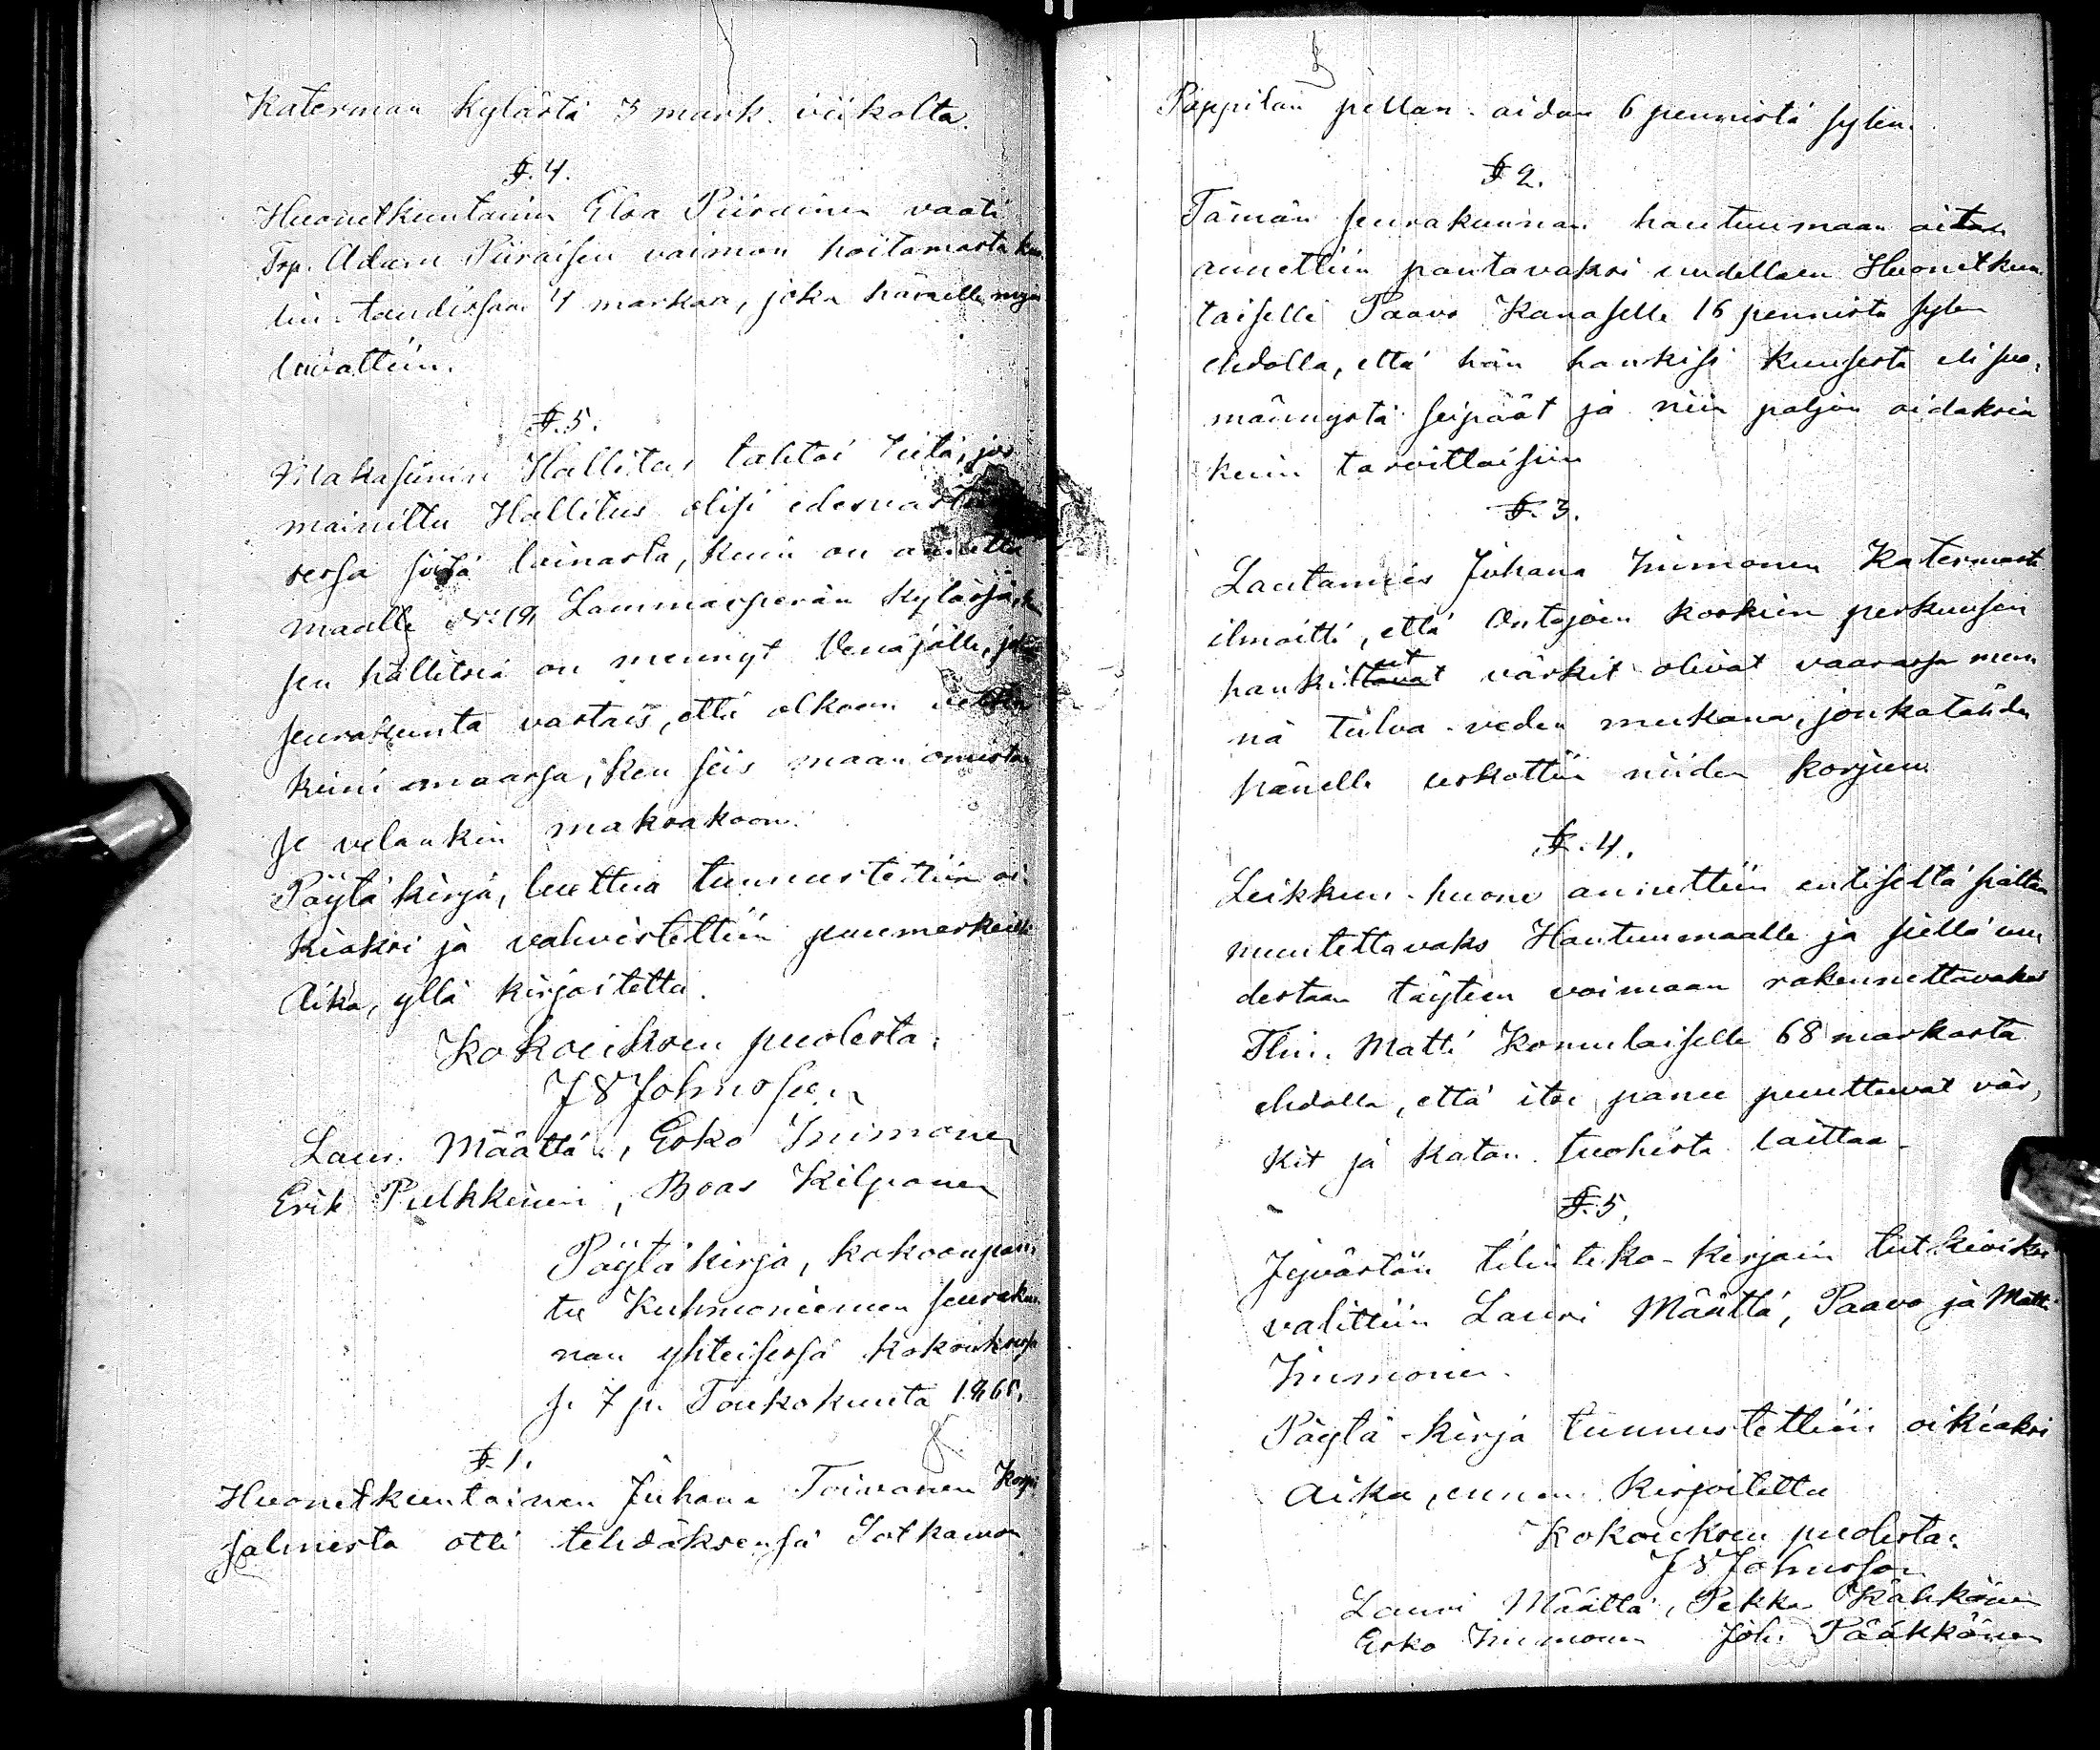 Katerman kylästä 3 mark. viikolta.
§. 4.
Huonetkuntainen Elsa Piirainen vaati
Trp. Adam Piiraisen vaimon hoitamasta kuo-
lin-taudissaan 4 markaa, joka hänelle myös
luvattiin.
§. 5.
Makasiinin Hallitus tahtoi tietä, jos
mainittu Hallitus olisi edesvastau-
sessa siitä lainasta, kuin on annettu
maalle No 19, Lammasperän kylässä,
sen hallitsia on mennyt Venäjälle,
seurakunta vastais, että olkoon velka
kiini maassa, ken siis maan omistaa
se velankin maksakoon.
Pöytäkirja, luettua tunnustettiin oi-
kiaksi ja vahvistettiin puumerkeillä
Aika, yllä kirjoitettu.
Kokouksen puolesta:
J V Johnsson
Laur. Määttä, Esko Immonen
Erik Pulkkinen, Boas Kilponen
Pöytäkirja, kokoonpan-
tu Kuhmoniemen seurakun-
nan yhteisessä kokouksessa
s. 7 p. Toukokuuta 1865.
§. 1.
Huonetkuntainen Juhana Toivanen Korpi
salmesta otti tehdäksensä Sotkamon
Pappilan pellan-aidan 6 pennistä sylen.
§ 2.
Tämän seurakunnan hautuumaan aitan
annettiin pantavaksi uudellaen Huonetkun-
taiselle Paavo Kanaselle 16 pennistä sylen
ehdolla, että hän hankisi kuusesta eli suo-
männystä seipäät ja niin paljon aidaksia
kuin tarvittaisiin
§. 3.
Lautamies Juhana Immonen Katermasta
ilmoitti, että Ontojoen koskien perkuusen
hankittut värkit olivat vaarassa men-
nä tulva-veden mukana, jonkatähden
hänelle uskottiin niiden korjuu
§. 4.
Leikkuu-huone annettiin entiseltä sialtaan
muutettavaks Hautuumaalle ja siellä uu-
destaan täyteen voimaan rakennettavaksi
Tlln. Matti Komulaiselle 68 markasta
ehdolla, että itse panee puuttuvat vär-
kit ja katon tuohista laittaa.
§. 5.
Jyvästön tilinteko-kirjain tutkioiksi
valittiin Lauri Määttä, Paavo ja Matti
Immonen.
Pöytä-kirja tunnustettiin oikiaksi
Aika, ennen kirjoitettu
Kokouksen puolesta:
J V Johnsson
Lauri Määttä, Pekka Kähkönen
Esko Immonen Joh. Pääkkönen